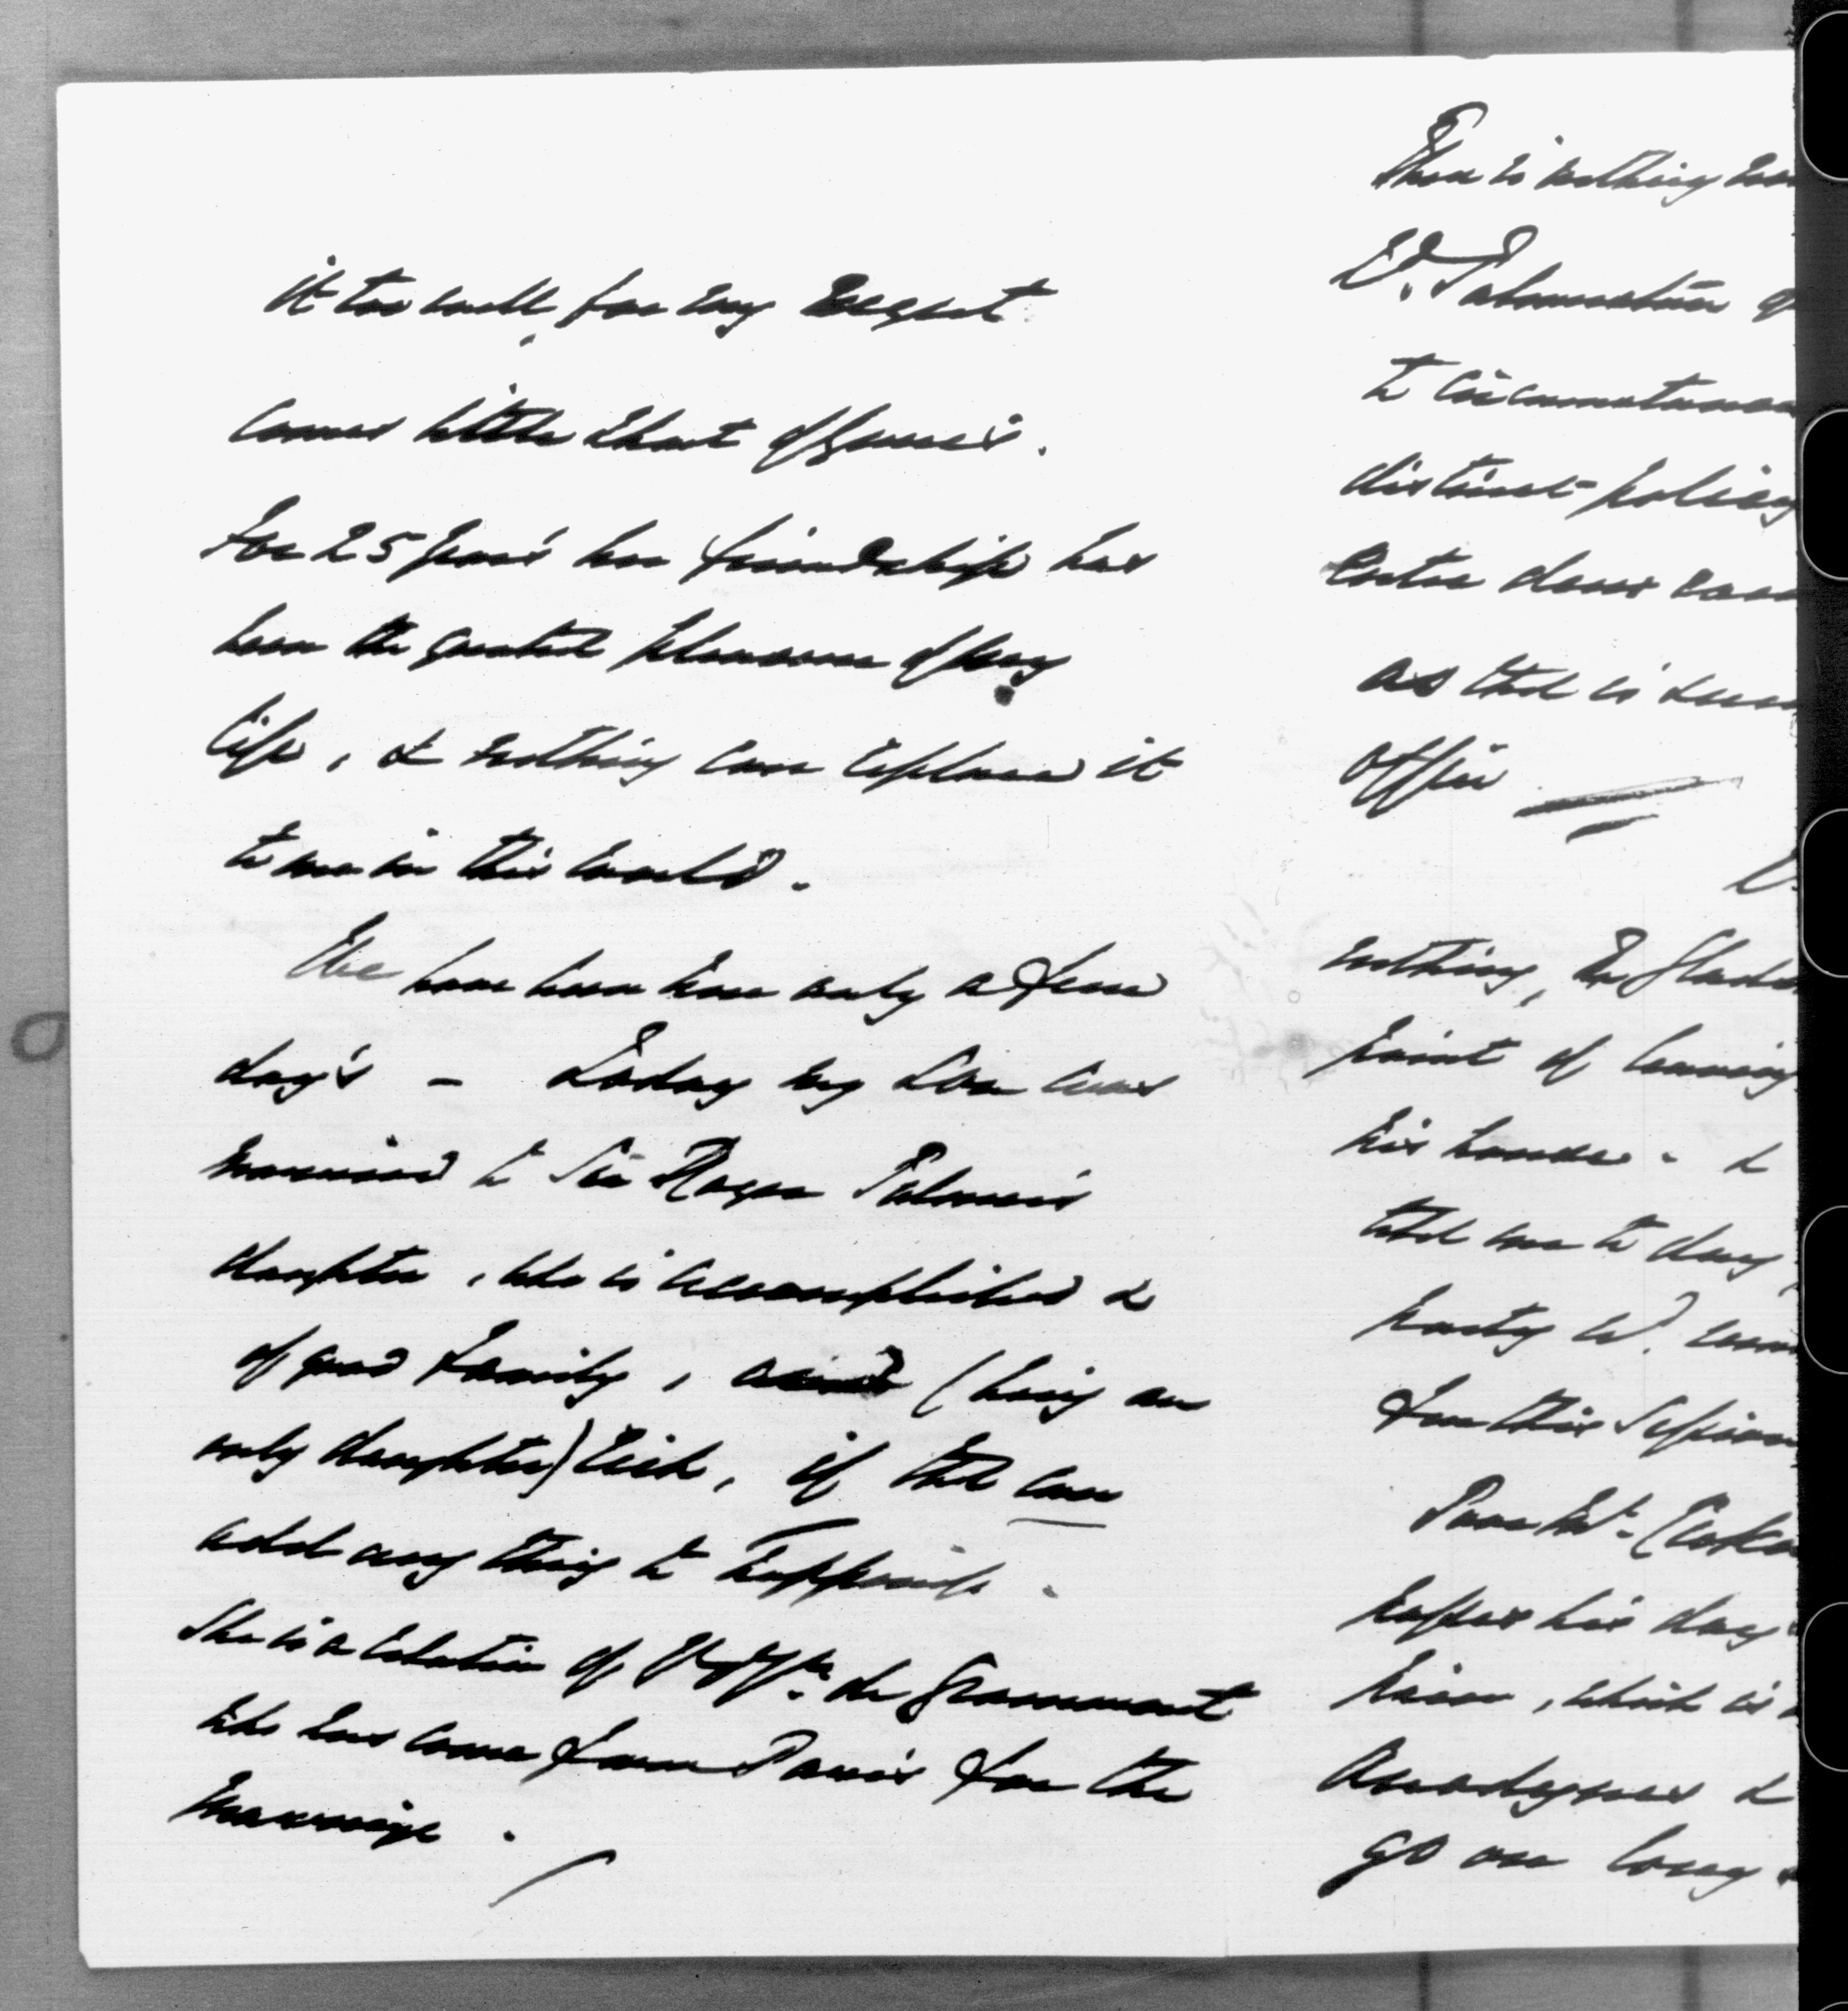 it too well, for my regret
comes little short of yours.
For 25 years her friendship has
been the greatest pleasure of my
life, & nothing can replace it
to me in this world.
We have been here only a few
days – Today my son was
married to Sir Roger Palmer's
daughter, who is accomplished &
of good family, and (being an
only daughter) rich, if that can
add any thing to happiness.
She is a relation of de Grammont
who has come from Paris for the
marriage.
There is nothing
Ld. Palmerston
to circumstances
distinct policy
as that is
office
nothing,
point of
his hands - &
told me to day
party
for this Session
Poor Mr.
passes his days
pain, which is
Anodynes &
go on long